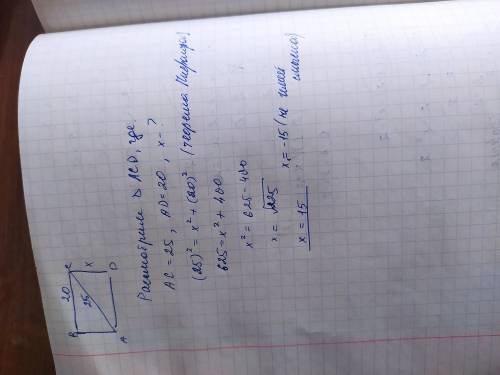 B 20 C
25 x
A D
Рассмотрим Δ ACD, где:
AC = 25, AD = 20, x - ?
(25)² = x² + (20)² (теорема Пифагора)
625 = x² + 400
x² = 625 - 400
x = √225
x = 15 x = -15 (не имеет смысла)